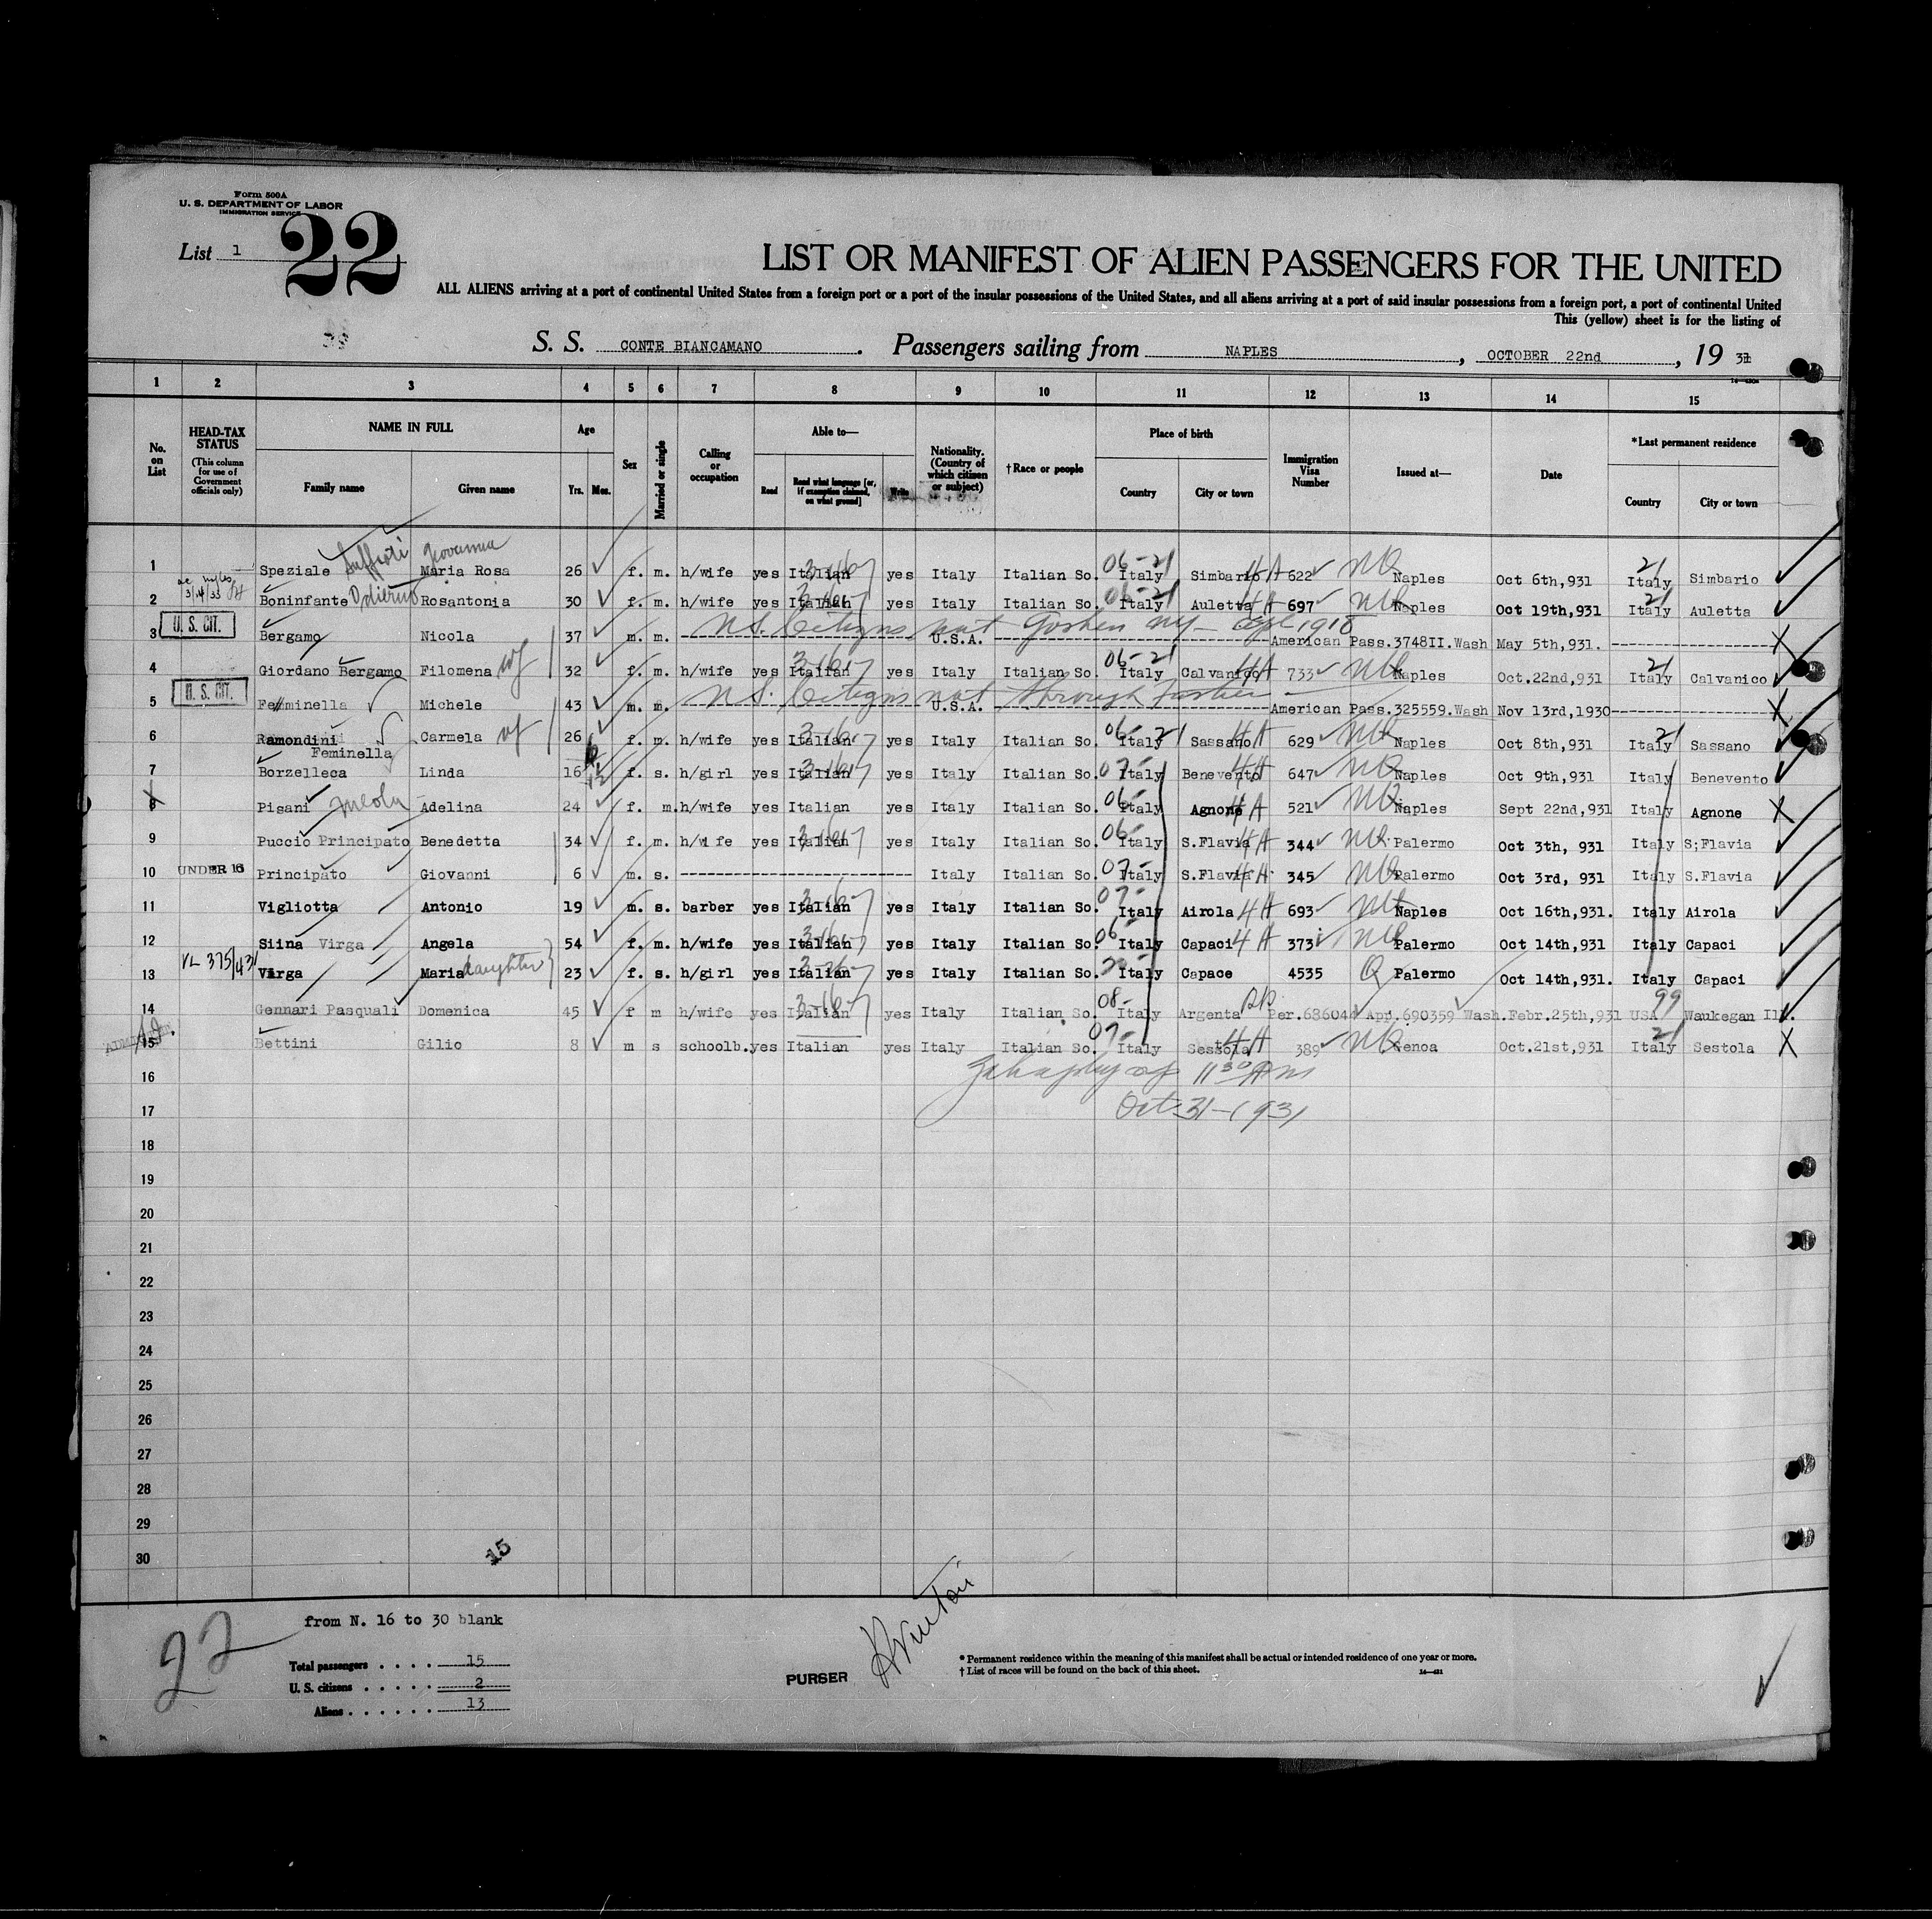 Form 500A
U. S. DEPARTMENT OF LABOR
IMMIGRATION SERVICE
22
List 1
LIST OR MANIFEST OF ALIEN PASSENGERS FOR THE UNITED
ALL ALIENS arriving at a port of continental United States from a foreign port or a port of the insular possessions of the United States, and all aliens arriving at a port of said insular possessions from a foreign port, a port of continental United
This (yellow) sheet is for the listing of
S. S. CONTE BIANCAMANO. Passengers sailing from NAPLES, OCTOBER 22nd, 19 31
1 2 3 4 5 6 7 8 9 10 11 12 13 14 15
No. on List
HEAD-TAX STATUS (This column for use of Government officials only)
NAME IN FULL
Family name
Given name
Age
Yrs. Mos.
Sex
Married or single
Calling or occupation
Able to—
Read
Read what language [or, if exemption claimed, on what ground]
Write
Nationality. (Country of which citizen or subject)
†Race or people
Place of birth
Country
City or town
Immigration Visa Number
Issued at—
Date
*Last permanent residence
Country
City or town
1 Speziale Giovanna Maria Rosa 26 f. m. h/wife yes Italian yes Italy Italian So. 06-21 Italy Simbario 4A 622 NQ Naples Oct 6th,931 21 Italy Simbario
2 Boninfante Odierno Rosantonia 30 f. m. h/wife yes Italian yes Italy Italian So. 06-21 Italy Auletta 4A 697 NQ Naples Oct 19th,931 21 Italy Auletta
3 U. S. CIT. Bergamo Nicola 37 m. m. U.S.A. American Pass.3748II.Wash May 5th,931.
4 Giordano Bergamo Filomena wf 32 f. m. h/wife yes Italian yes Italy Italian So. 06-21 Italy Calvanico 4A 733 NQ Naples Oct.22nd,931 21 Italy Calvanico
5 U. S. CIT. Feminella Michele 43 m. m. U.S.A. American Pass.325559.Wash Nov 13rd,1930
6 Ramondini Feminella Carmela wf 26 f. m. h/wife yes Italian yes Italy Italian So. 06-21 Italy Sassano 4A 629 NQ Naples Oct 8th,931 21 Italy Sassano
7 Borzelleca Linda 16 f. s. h/girl yes Italian yes Italy Italian So. 07- Italy Benevento 4A 647 NQ Naples Oct 9th,931 Italy Benevento
8 Pisani Adelina 24 f. m. h/wife yes Italian yes Italy Italian So. 06- Italy Agnone 4A 521 NQ Naples Sept 22nd,931 Italy Agnone
9 Puccio Principato Benedetta 34 f. m. h/wife yes Italian yes Italy Italian So. 06- Italy S.Flavia 4A 344 NQ Palermo Oct 3th, 931 Italy S;Flavia
10 UNDER 16 Principato Giovanni 6 m. s. Italy Italian So. 07- Italy S.Flavia 4A 345 NQ Palermo Oct 3rd, 931 Italy S.Flavia
11 Vigliotta Antonio 19 m. s. barber yes Italian yes Italy Italian So. 07- Italy Airola 4A 693 NQ Naples Oct 16th,931. Italy Airola
12 Siina Virga Angela 54 f. m. h/wife yes Italian yes Italy Italian So. 06- Italy Capaci 4A 373 NQ Palermo Oct 14th,931 Italy Capaci
13 VL 375/431 Virga Maria daughter 23 f. s. h/girl yes Italian yes Italy Italian So. Italy Capace 4535 Q Palermo Oct 14th,931. Italy Capaci
14 Gennari Pasquali Domenica 45 f m h/wife yes Italian yes Italy Italian So. 08- Italy Argenta Per.686044 App.690359 Wash.Febr.25th,931 99 USA Waukegan Ill.
15 Bettini Gilio 8 m s schoolb. yes Italian yes Italy Italian So. 07- Italy Sestola 4A 389 NQ Genoa Oct.21st,931 21 Italy Sestola
16 11 30 AM
17 Oct 31-1931
18
19
20
21
22
23
24
25
26
27
28
29
30
15
from N. 16 to 30 blank
22
Total passengers . . . . 15
U. S. citizens . . . . . 2
Aliens . . . . . . 13
PURSER
* Permanent residence within the meaning of this manifest shall be actual or intended residence of one year or more.
† List of races will be found on the back of this sheet.